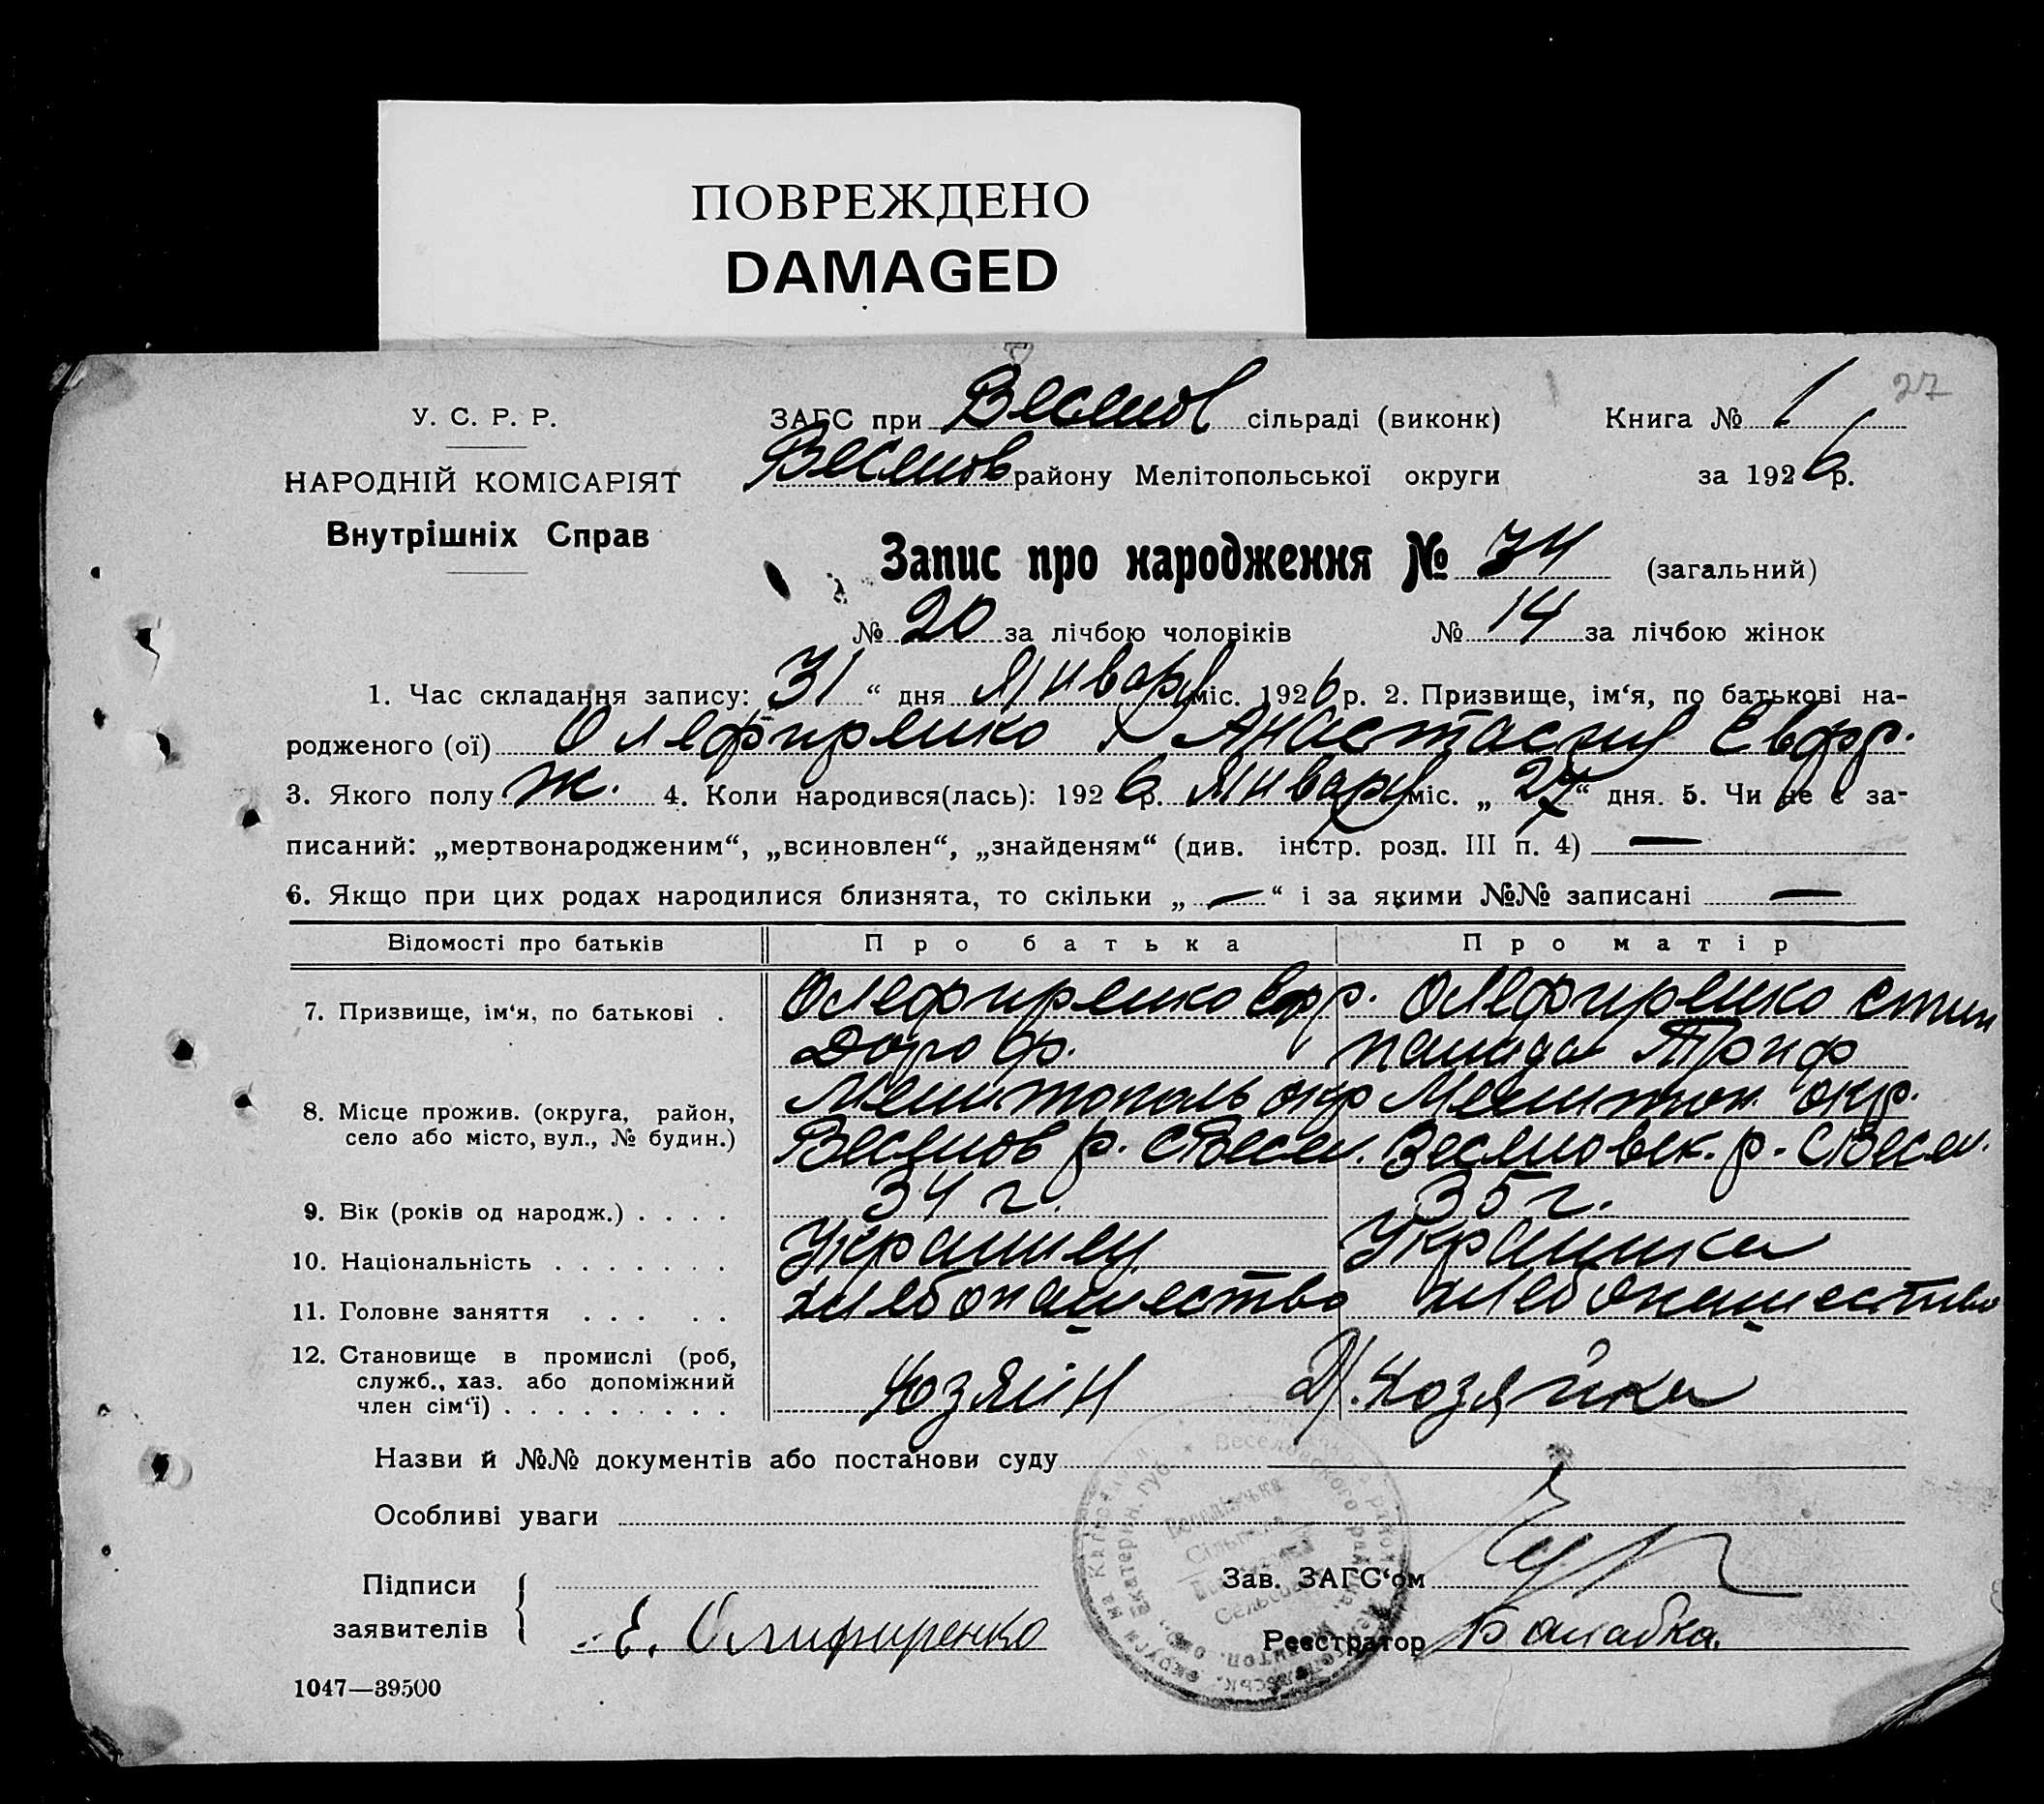 ПОВРЕЖДЕНО
DAMAGED
27
У. С. Р. Р.
НАРОДНІЙ КОМІСАРІЯТ
Внутрішніх Справ
ЗАГС при Веселов сільраді (виконк)
Веселов району Мелітопольської округи
Книга № 1
за 1926 р.
Запис про народження № 34 (загальний)
№ 20 за лічбою чоловіків № 14 за лічбою жінок
1. Час складання запису: 31 “ дня Январу міс. 1926 р. 2. Призвище, ім‘я, по батькові на-
родженого (ої) Олефиренко Анастасия Евфр.
3. Якого полу ж. 4. Коли народився(лась): 1926 р. Январу міс. „ 27 “ дня. 5. Чи не є за-
писаний: „мертвонародженим“, „всиновлен“, „знайденям“ (див. інстр. розд. III п. 4) —
6. Якщо при цих родах народилися близнята, то скільки „ — “ і за якими №№ записані —
Відомості про батьків Про батька Про матір
7. Призвище, ім‘я, по батькові . Олефиренко Евфр. Олефиренко Степ
Дороф. панида Триф
8. Місце прожив. (округа, район, Мелитополь окр Мелитоп. окр.
село або місто, вул., № будин.) Веселов р. с Весел. Веселовск. р. с Весел.
9. Вік (років од народж.) . . . . 34 г. 35 г.
10. Національність . . . . . . . Украинец Украинка
11. Головне заняття . . . . . хлебопашество хлебопашество
12. Становище в промислі (роб,
служб., хаз. або допоміжний Хозяін Д/.Хозяйка
член сім‘ї) . . . . . . . . .
Назви й №№ документів або постанови суду
Особливі уваги
Підписи
заявителів Е. Олифиренко
Зав. ЗАГС‘ом
Реєстратор Балабка.
1047—39500